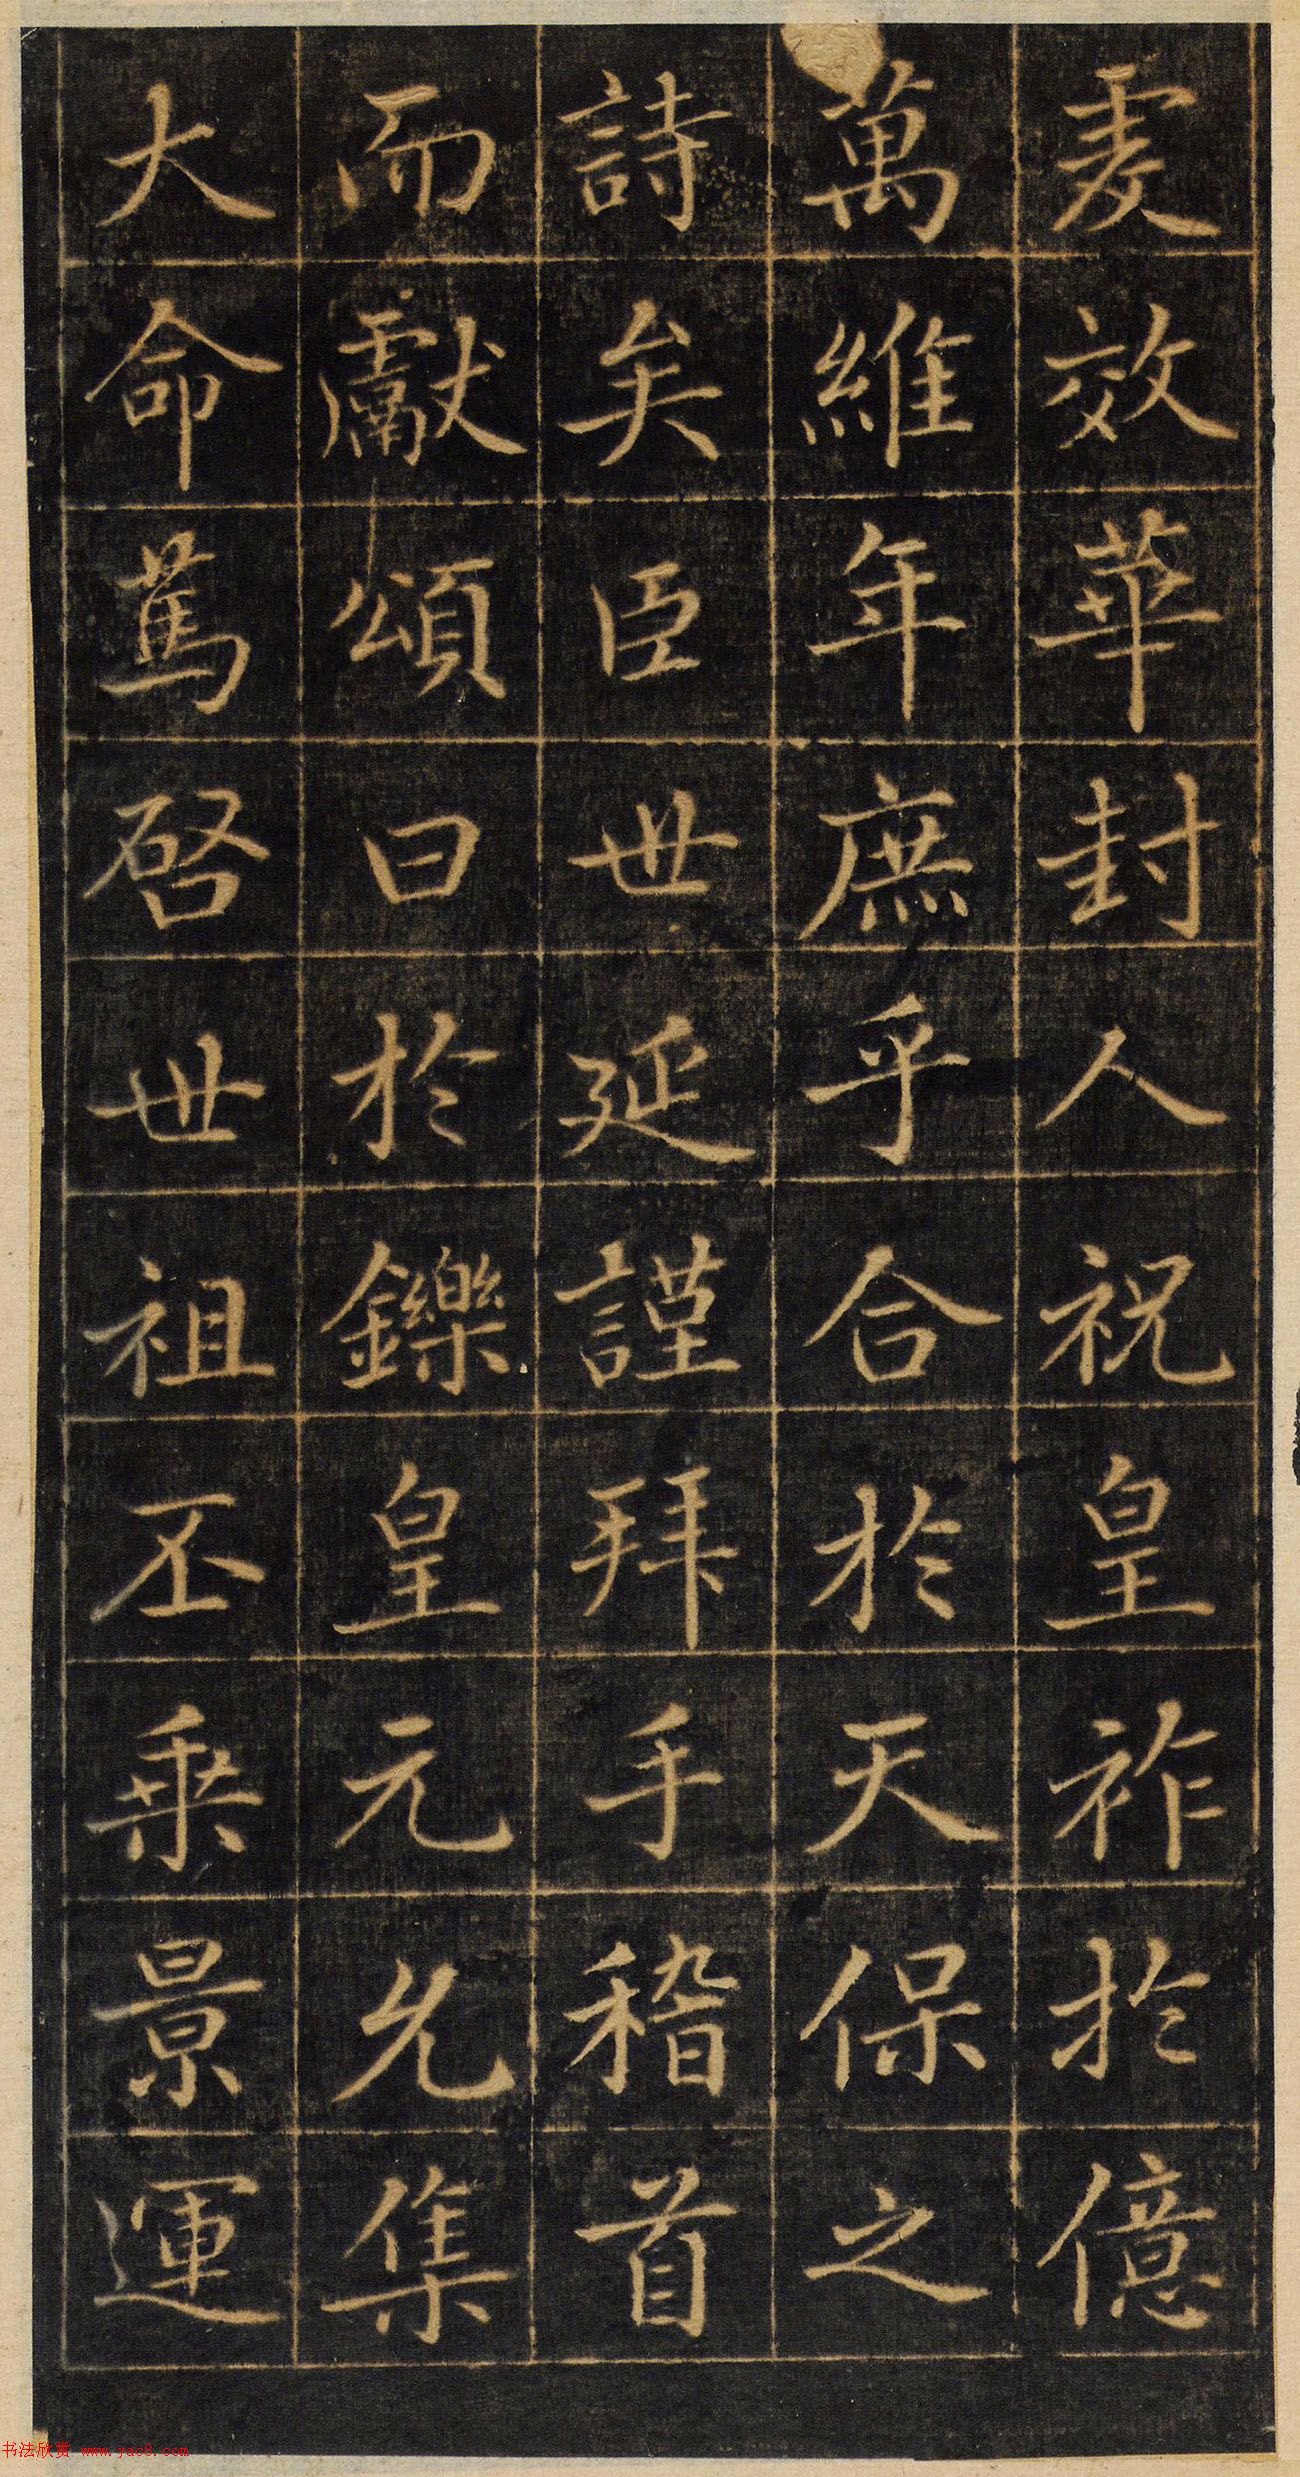 爰效華封人祝皇祚於億
萬維年庶乎合於天保之
詩矣臣世延謹拜手稽首
而獻頌曰於鑠皇元允集
大命篤啓世祖丕乘景運
书法欣赏 www.yac8.com